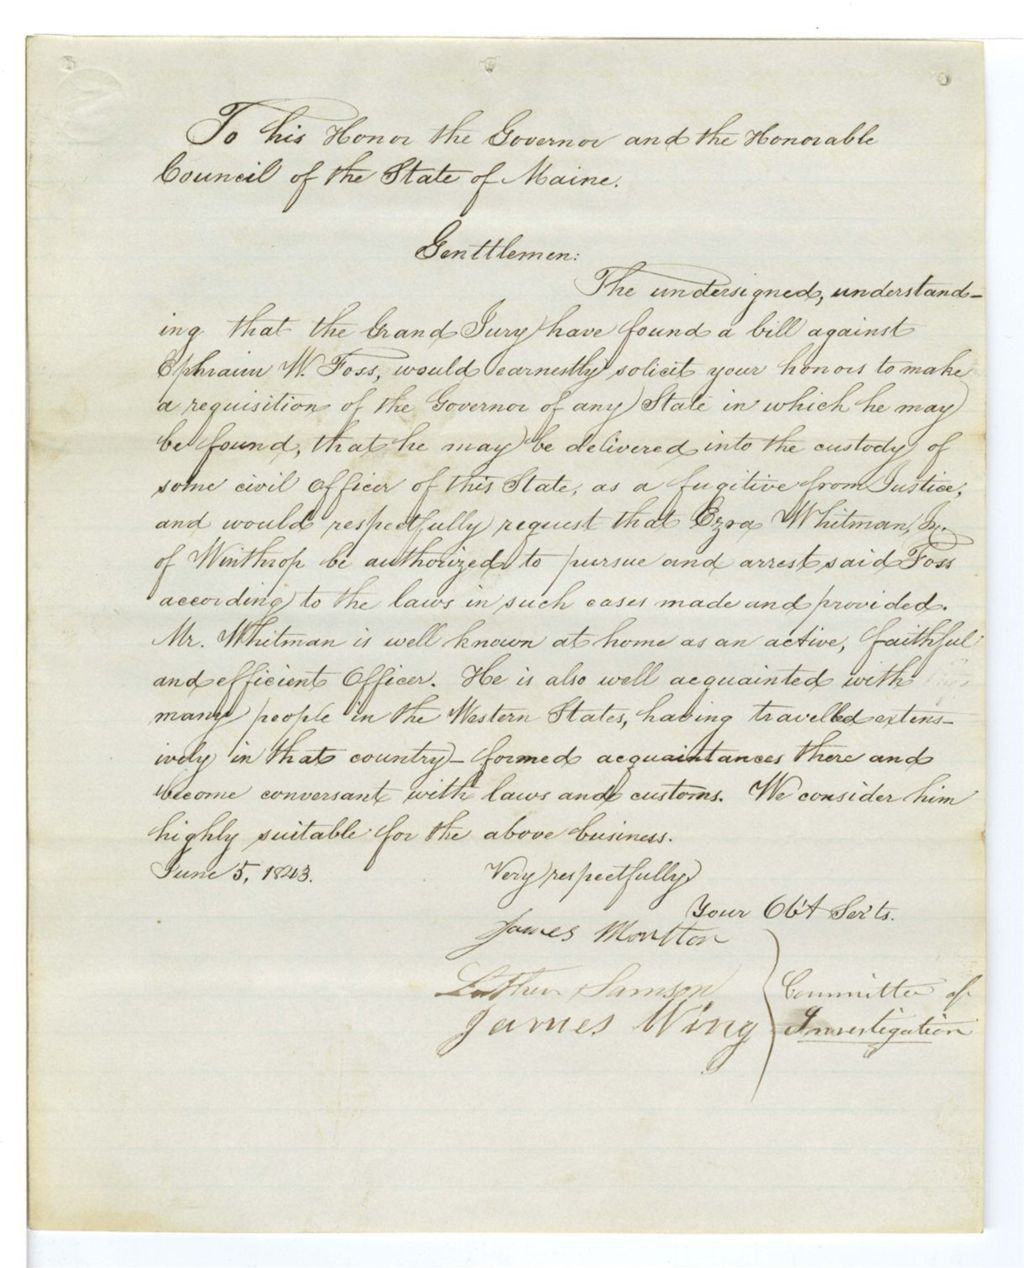 To his Honor the Governor and the Honorable
Council of the State of Maine.
Genttlemen:
The undersigned, understand-
ing that the Grand Jury have found a bill against
Ephraim W. Foss, would earnestly solicit your honors to make
a requisition of the Governor of any State in which he may
be found, that he may be delivered into the custody of
some civil Officer of this State, as a fugitive from Justice,
and would respectfully request that Ezra Whitman, Jr.
of Winthrop be authorized to pursue and arrest said Foss
according to the laws in such cases made and provided.
Mr. Whitman is well known at home as an active, faithful
and efficient Officer. He is also well acquainted with
many people in the Western States, having travelled extens-
ively in that country - formed acquaintances there and
become conversant with laws and customs. We consider him
highly suitable for the above business.
June 5, 1843.
Very respectfully
Your Obt Servts.
James Moulton
Luther Samson
James Wing
Committee of
Investigation